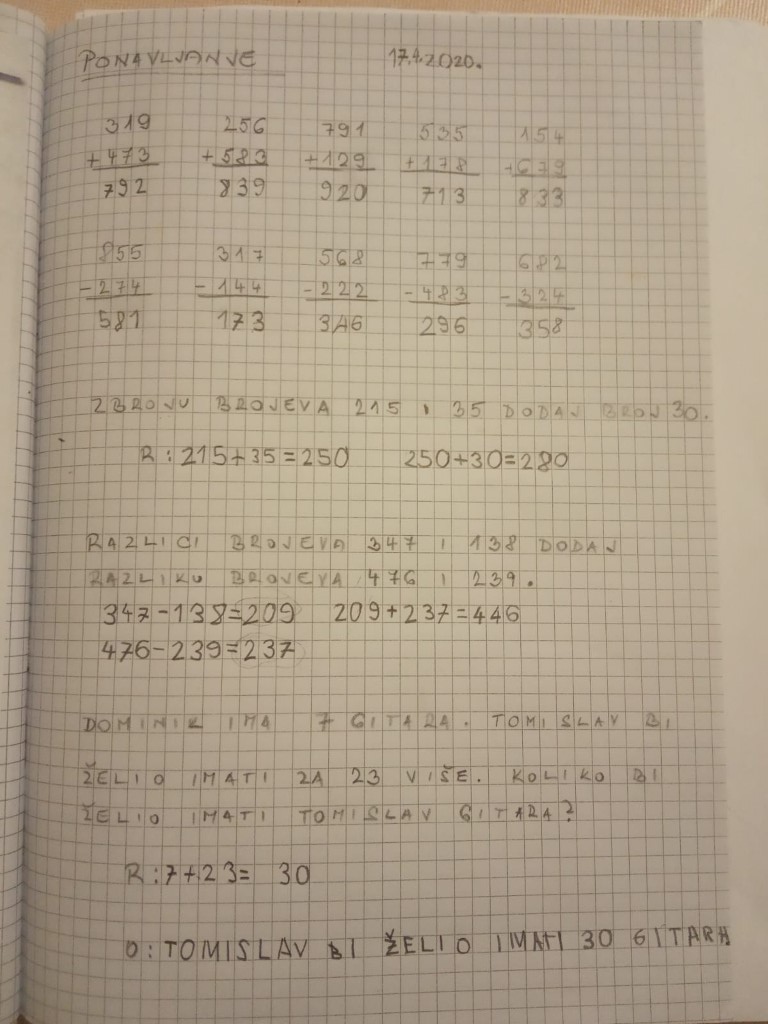 PONAVLJANJE 17.4.2020.
319 256 791 535 154
+473 +583 +129 +178 +679
792 839 920 713 833
855 317 568 779 682
-274 -144 -222 -483 -324
581 173 346 296 358
ZBROJU BROJEVA 215 I 35 DODAJ BROJ 30.
R: 215+35=250 250+30=280
RAZLICI BROJEVA 347 I 138 DODAJ
RAZLIKU BROJEVA 476 I 239.
347-138=209 209+237=446
476-239=237
DOMINIK IMA 7 GITARA. TOMISLAV BI
ŽELIO IMATI ZA 23 VIŠE. KOLIKO BI
ŽELIO IMATI TOMISLAV GITARA?
R:7+23= 30
O: TOMISLAV BI ŽELIO IMATI 30 GITARA